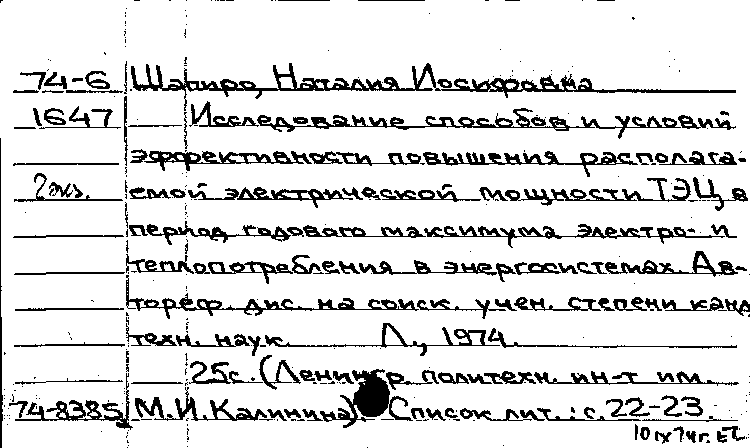 74-6 Шапиро, Наталия Иосифовна
1647 Исследование способов и условий
эффективности повышения располага-
2 экз. емой электрической мощности ТЭЦ в
период годового максимума электро- и
теплопотребления в энергосистемах. Ав-
тореф. дис. на соиск. учен. степени канд
техн. наук. Л., 1974.
25с. (Ленингр. политехн. ин-т им.
74-8385 М.И. Калинина). Список лит.: с. 22-23.
10 IX 74г.